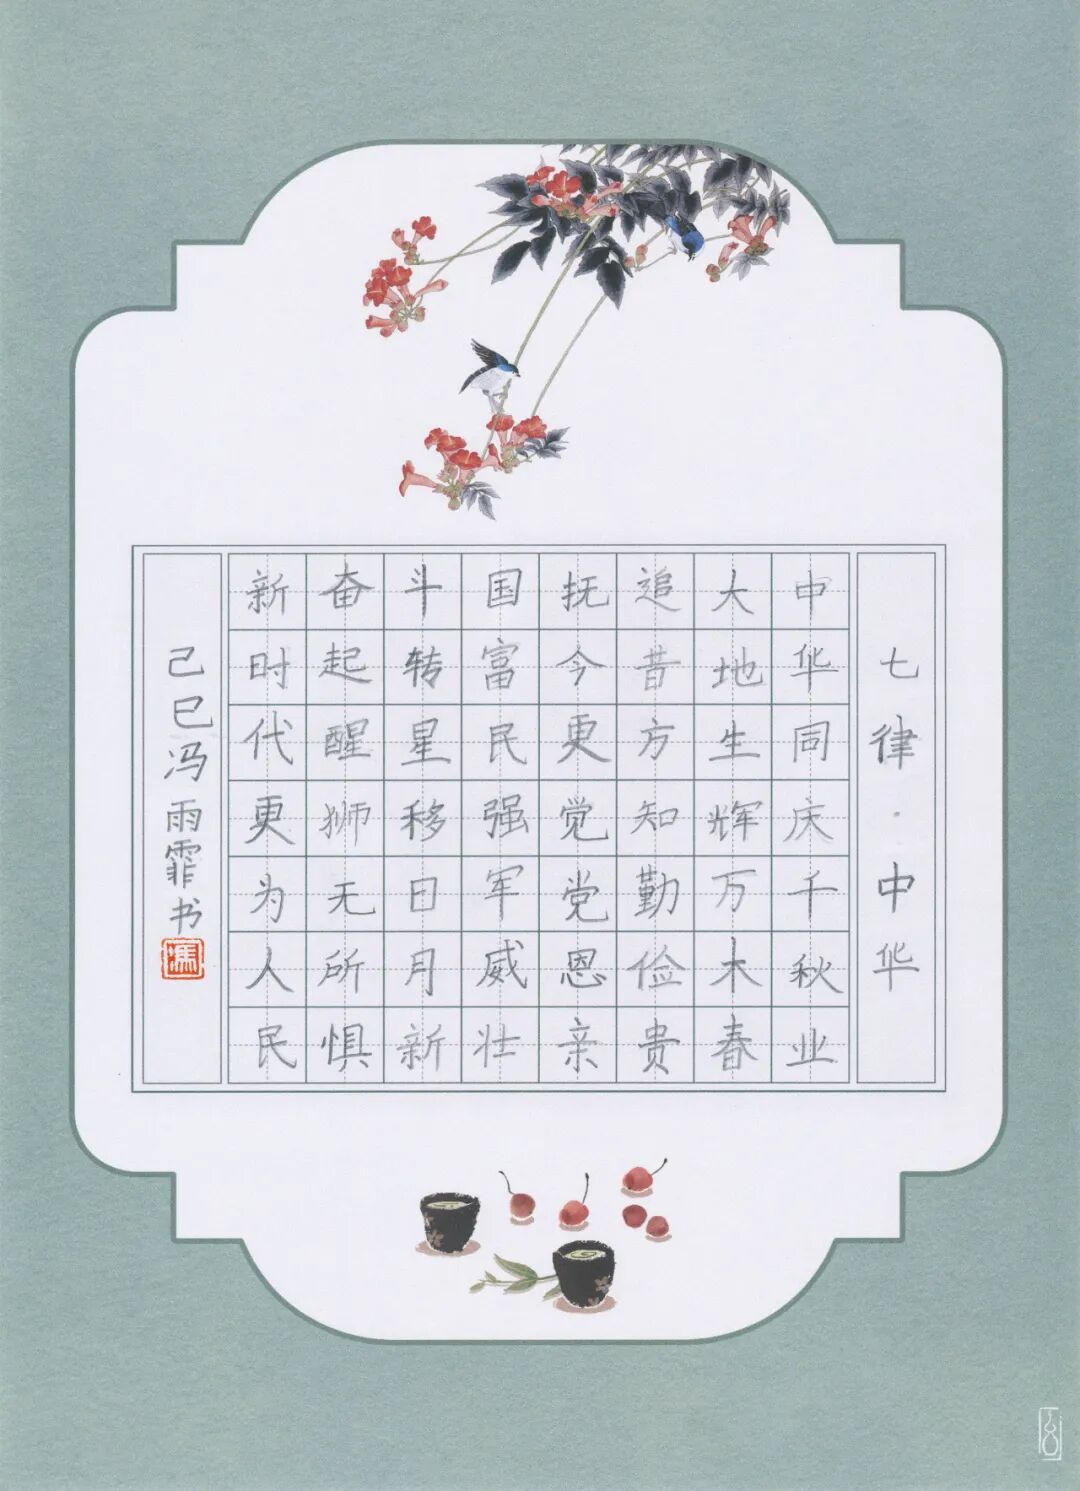 七律·中华
中华同庆千秋业
大地生辉万木春
追昔方知勤俭贵
抚今更觉党恩亲
国富民强军威壮
斗转星移日月新
奋起醒狮无所惧
新时代更为人民
己巳冯雨霏书
馮